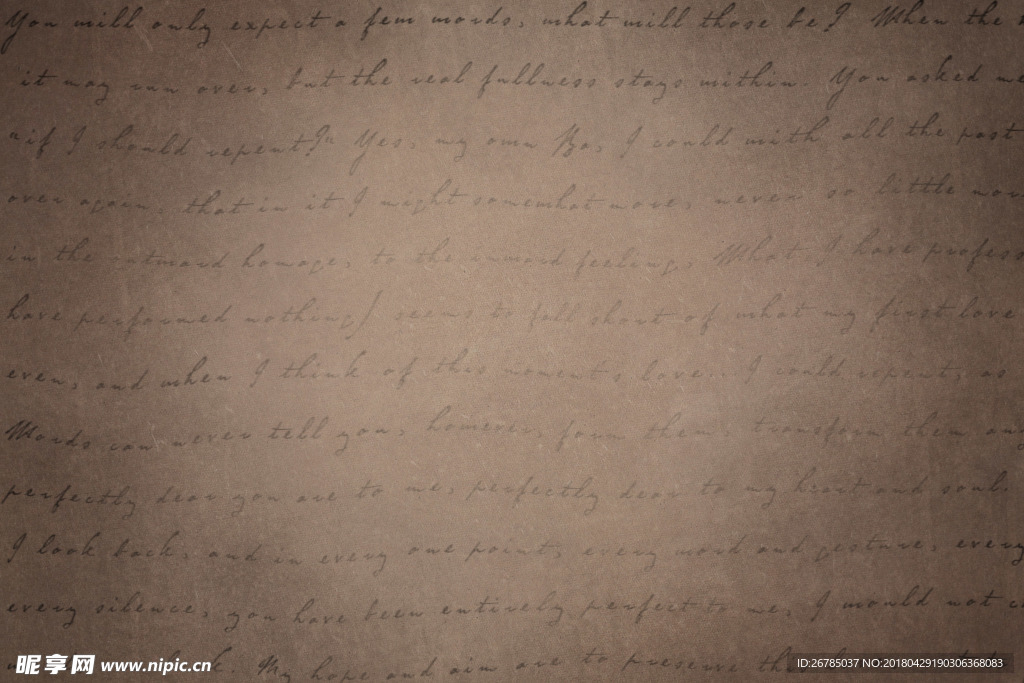 You will only expect a few words, what will those be? When the
it may run over, but the real fullness stays within. You asked me
"if I should repent?" Yes, my own Ba, I could wish all the past
over again, that in it I might somewhat more, never so little mor
in the outward homage, to the inward feeling. What I have profess
have performed nothing) seems to fall short of what my first love
even, and when I think of this moment's love.. I could repent, as
Words can never tell you, however, form them, transform them any
perfectly dear you are to me, perfectly dear to my heart and soul.
I look back, and in every one point, every word and gesture, every
every silence, you have been entirely perfect to me, I would not
My hope and aim are to preserve
昵享网 www.nipic.cn
ID:26785037 NO:20180429190306368083